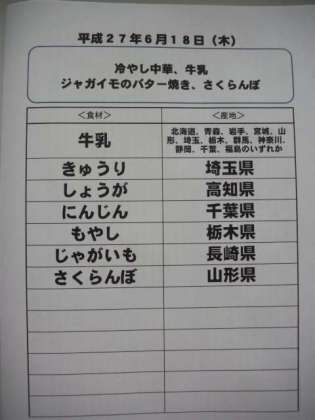 平成27年6月18日（木）
冷やし中華、牛乳
ジャガイモのバター焼き、さくらんぼ
＜食材＞ ＜産地＞
牛乳 北海道、青森、岩手、宮城、山
形、埼玉、栃木、群馬、神奈川、
静岡、千葉、福島のいずれか
きゅうり 埼玉県
しょうが 高知県
にんじん 千葉県
もやし 栃木県
じゃがいも 長崎県
さくらんぼ 山形県